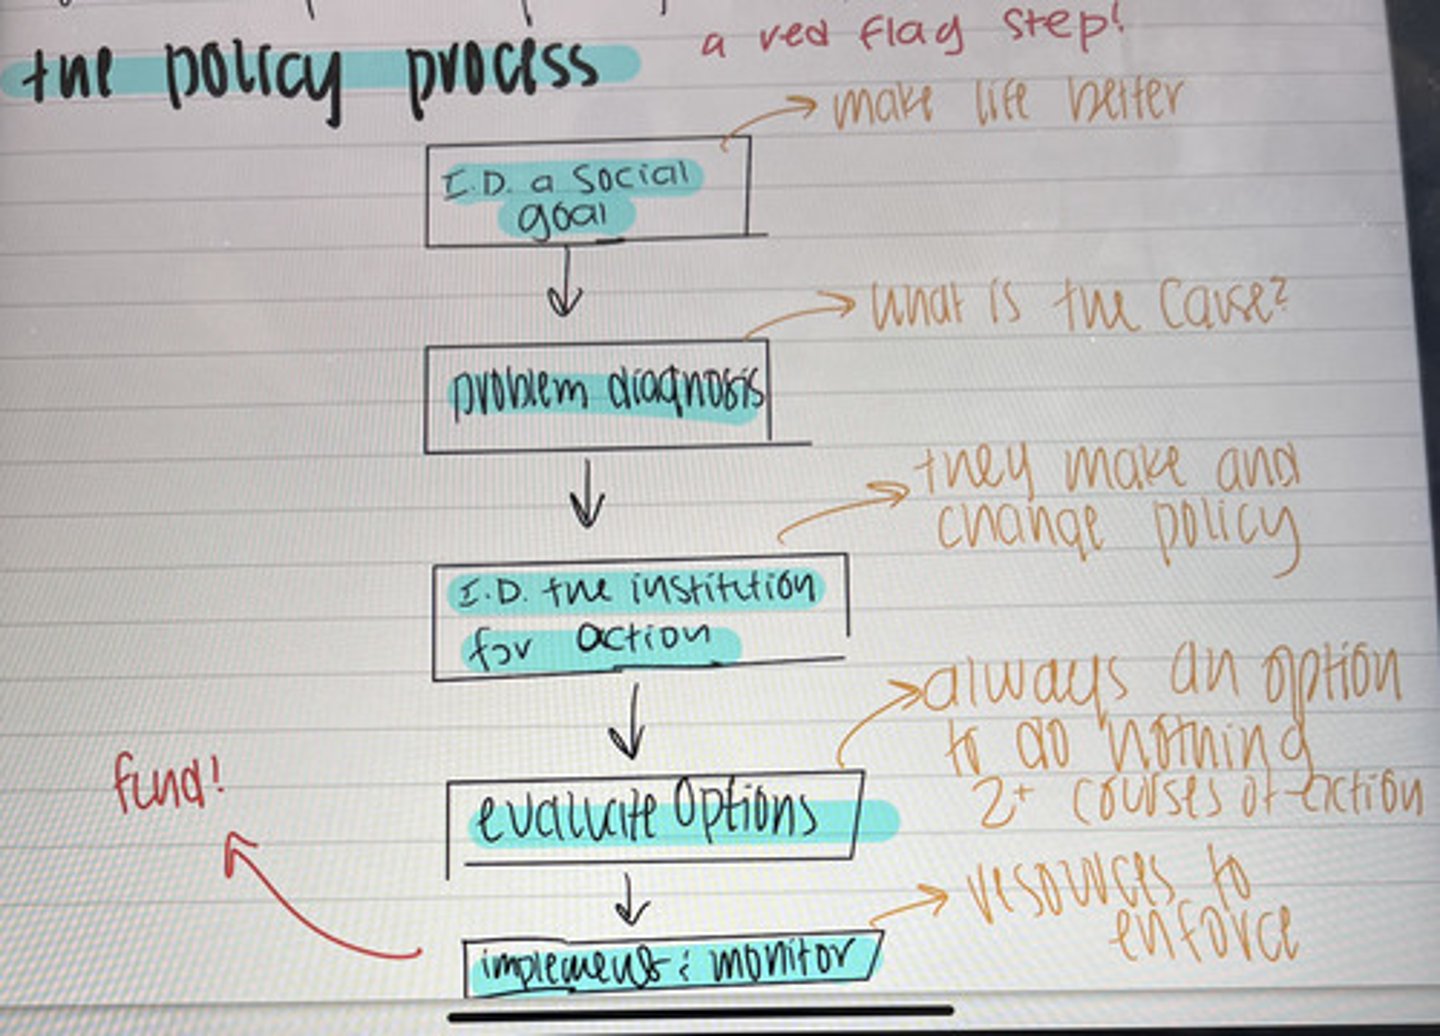 the policy process
a red flag step!
make life better
I.D. a social
goal
what is the cause?
problem diagnosis
they make and
change policy
I.D. the institution
for action
always an option
to do nothing
2+ courses of action
fund!
evaluate options
resources to
enforce
implement & monitor